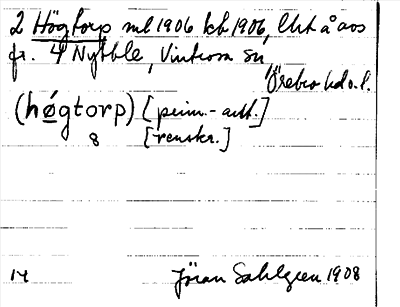 2 Högtorp ml 1906 kb 1906, Uht å avs
fr. 4 Nybble, Vintrosa Sn
Örebro hd o. l.
(høgtorp) [prim.-auth.]
8 [renskr.]
14 Jöran Sahlgren 1908